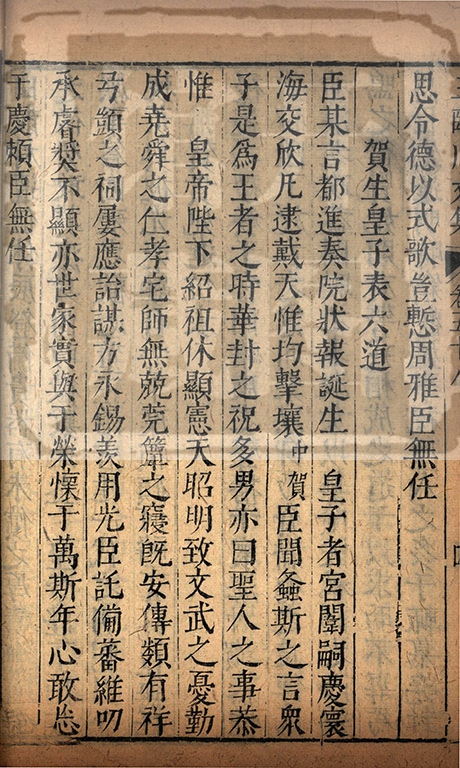 思令德以式歌豈慙周雅臣無任
賀生皇子表六道
臣某言都進奏院狀報誕生　皇子者宮闈嗣慶寰
海交欣凡逮戴天惟均擊壤中賀臣聞螽斯之言衆
子是為王者之時華封之祝多男亦曰聖人之事恭
惟　皇帝陛下紹祖休顯憲天昭明致文武之憂勤
成堯舜之仁孝宅師無兢莞簟之寢旣安傳類有祥
弓韣之祠屢應詒謀方永錫羨用光臣託備蕃維叨
承睿奬不顯亦世家實與于榮懷于萬斯年心敢忘
于慶賴臣無任